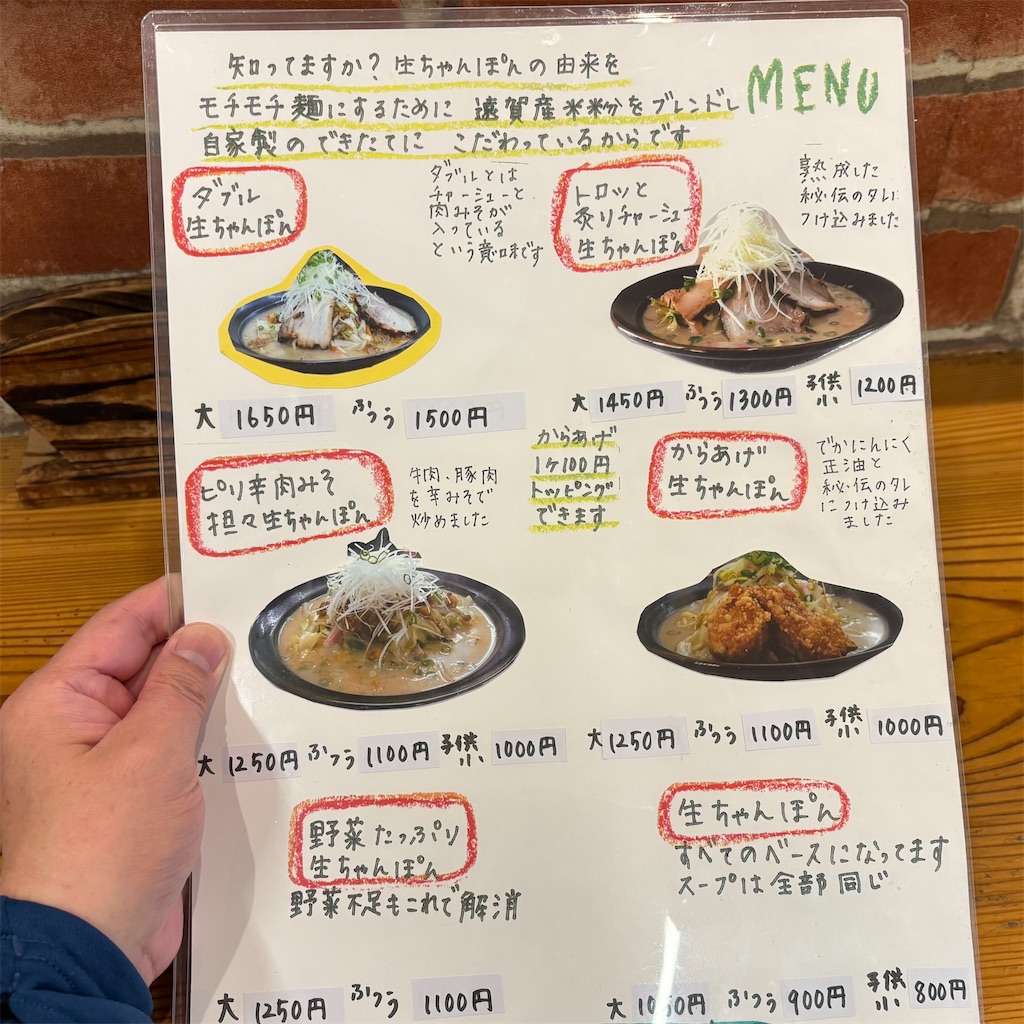 知ってますか？生ちゃんぽんの由来を
モチモチ麺にするために 遠賀産米粉をブレンドし
自家製のできたてに こだわっているからです
MENU
ダブル
生ちゃんぽん
ダブルとは
チャーシューと
肉みそが
入っている
という意味です
大 1650円 ふつう 1500円
トロッと
炙りチャーシュー
生ちゃんぽん
熟成した
秘伝のタレに
つけ込みました
大 1450円 ふつう 1300円 子供 小 1200円
ピリ辛肉みそ
担々生ちゃんぽん
牛肉、豚肉
を辛みそで
炒めました
大 1250円 ふつう 1100円 子供 小 1000円
からあげ
1ヶ100円
トッピング
できます
からあげ
生ちゃんぽん
でかにんにく
正油と
秘伝のタレ
につけ込み
ました
大 1250円 ふつう 1100円 子供 小 1000円
野菜たっぷり
生ちゃんぽん
野菜不足もこれで解消
大 1250円 ふつう 1100円
生ちゃんぽん
すべてのベースになってます
スープは全部同じ
大 1050円 ふつう 900円 子供 小 800円